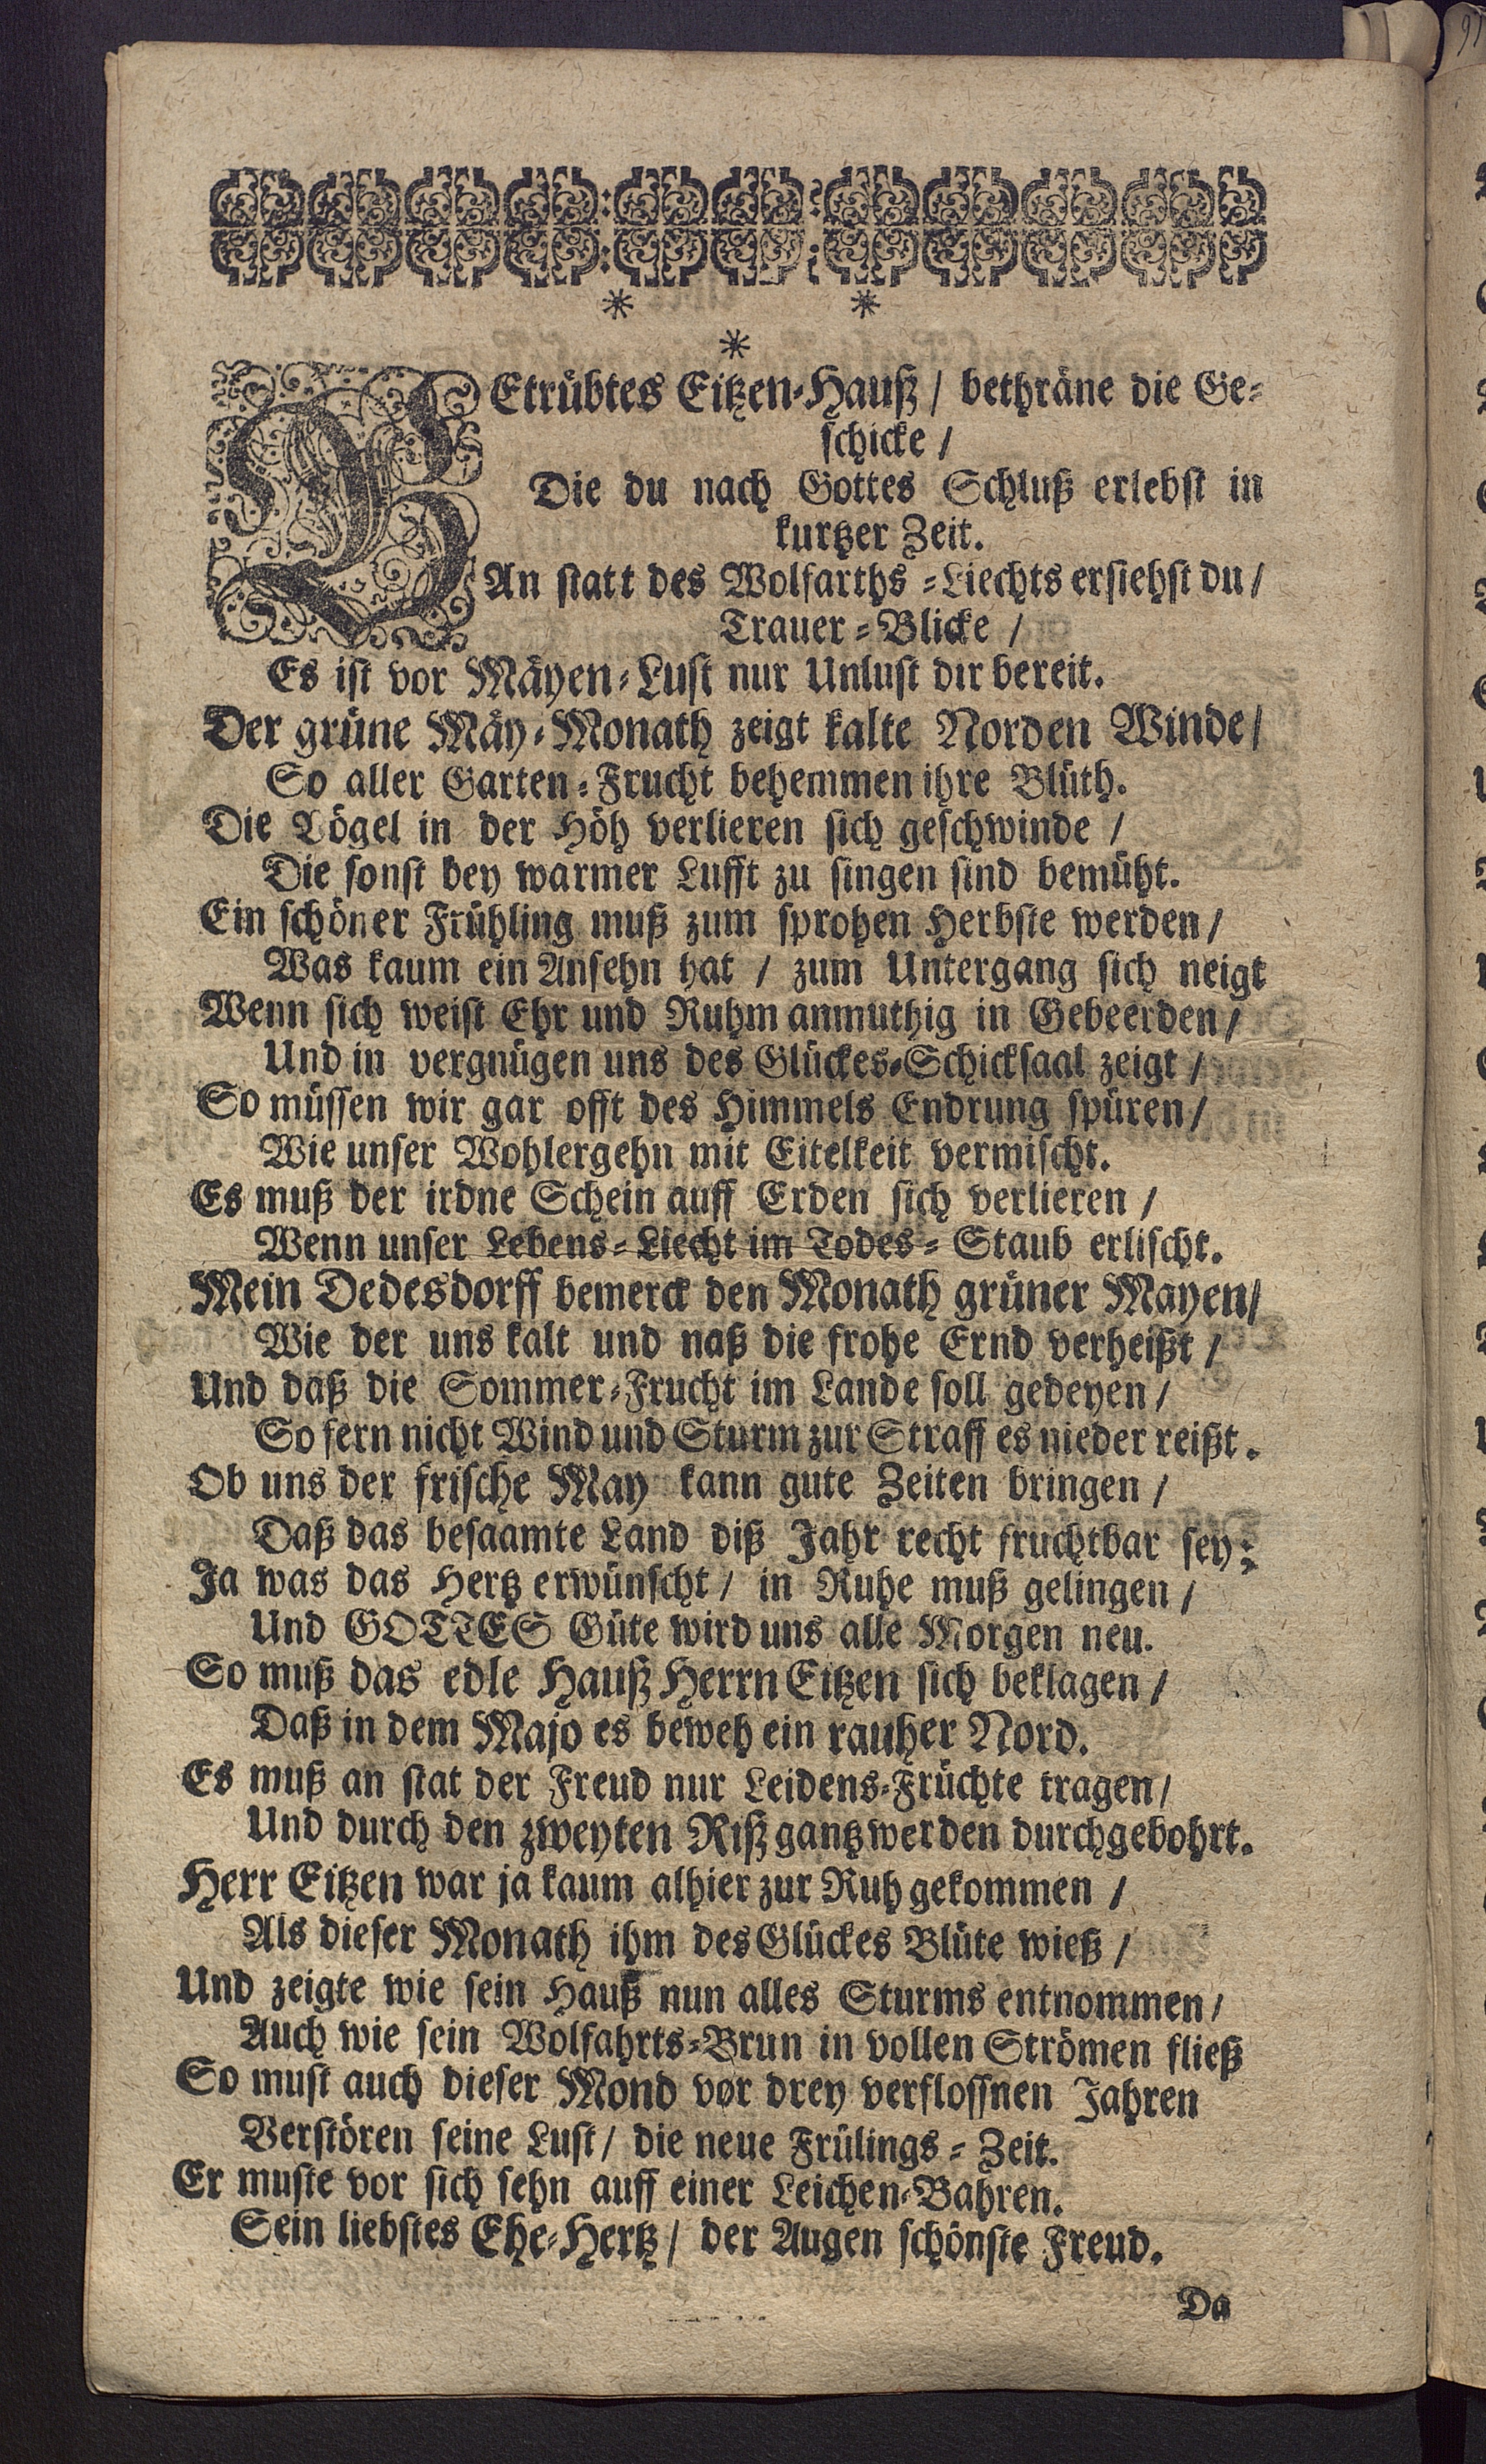 * *
*
BEtrübtes Eitzen-Hauß / bethräne die Ge-
schicke /
Die du nach Gottes Schluß erlebst in
kurtzer Zeit.
An statt des Wolfarths-Liechts ersiehst du /
Trauer-Blicke /
Es ist vor Mäyen-Lust nur Unlust dir bereit.
Der grüne Mäy-Monath zeigt kalte Norden Winde /
So aller Garten-Frucht behemmen ihre Blüth.
Die Vögel in der Höh verlieren sich geschwinde /
Die sonst bey warmer Lufft zu singen sind bemüht.
Ein schöner Frühling muß zum sprohen Herbste werden /
Was kaum ein Ansehn hat / zum Untergang sich neigt
Wenn sich weist Ehr und Ruhm anmuthig in Gebeerden /
Und in vergnügen uns des Glückes-Schicksaal zeigt /
So müssen wir gar offt des Himmels Endrung spüren /
Wie unser Wohlergehn mit Eitelkeit vermischt.
Es muß der irdne Schein auff Erden sich verlieren /
Wenn unser Lebens-Liecht im Todes-Staub erlischt.
Mein Dedesdorff bemerck den Monath grüner Mayen /
Wie der uns kalt und naß die frohe Ernd verheißt /
Und daß die Sommer-Frucht im Lande soll gedeyen /
So fern nicht Wind und Sturm zur Straff es nieder reißt.
Ob uns der frische May kann gute Zeiten bringen /
Daß das besaamte Land diß Jahr recht fruchtbar sey;
Ja was das Hertz erwünscht / in Ruhe muß gelingen /
Und GOTTES Güte wird uns alle Morgen neu.
So muß das edle Hauß Herrn Eitzen sich beklagen /
Daß in dem Majo es beweh ein rauher Nord.
Es muß an stat der Freud nur Leidens-Früchte tragen /
Und durch den zweyten Riß gantz werden durchgebohrt.
Herr Eitzen war ja kaum alhier zur Ruh gekommen /
Als dieser Monath ihm des Glückes Blüte wieß /
Und zeigte wie sein Hauß nun alles Sturms entnommen /
Auch wie sein Wolfahrts-Brun in vollen Strömen fließ
So must auch dieser Mond vor drey verflossnen Jahren
Verstören seine Lust / die neue Frülings-Zeit.
Er muste vor sich sehn auff einer Leichen-Bahren.
Sein liebstes Ehe-Hertz / der Augen schönste Freud.
Da